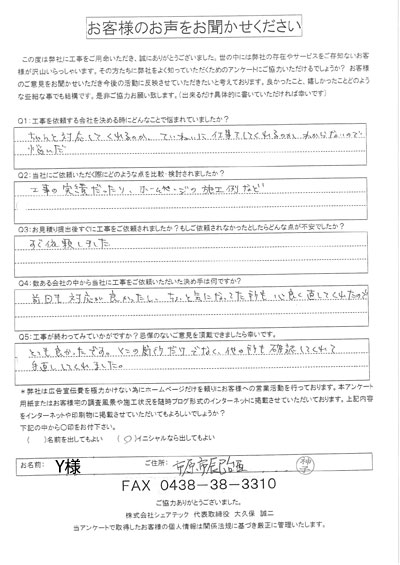 お客様のお声をお聞かせください
この度は弊社に工事をご用命いただき、誠にありがとうございました。世の中には弊社の存在やサービスをご存知ないお客
様が沢山いらっしゃいます。その方たちに弊社をよく知っていただくためのアンケートにご協力いただけるでしょうか？ お客様
のご意見をお聞かせいただき今後の活動に反映させていただきたいと考えております。良かったこと、嬉しかったことどのよう
な些細な事でも結構です。是非ご協力お願い致します。（出来るだけ具体的に書いていただければ幸いです）
Q1:工事を依頼する会社を決める時にどんなことで悩まれていましたか？
ちゃんと対応してくれるのか、ていねいに仕事してくれるのか、わからないので
悩んだ
Q2:当社にご依頼いただく際にどのような点を比較・検討されましたか？
工事の実績だったり、ホームページの施工例など
Q3:お見積り提出後すぐに工事をご依頼されましたか？もしご依頼されなかったとしたらどんな点が不安でしたか？
すぐ依頼しました
Q4:数ある会社の中から当社に工事をご依頼いただいた決め手は何ですか？
前回も対応が良かったし、ちょっと気になってた所も心良く直してくれたので
Q5:工事が終わってみていかがですか？忌憚のないご意見を頂戴できましたら幸いです。
とても良かったです。その箇所だけでなく、他の所も確認してくれて
手直ししてくれました。
＊弊社は広告宣伝費を極力かけない為にホームページだけを頼りにお客様への営業活動を行っております。本アンケート
用紙またはお客様宅の調査風景や施工状況を随時ブログ形式のインターネットに掲載させていただいております。上記内容
をインターネットや印刷物に掲載させていただいてもよろしいでしょうか？
下記の中から〇印をお付下さい。
（　）名前を出してもよい　（〇）イニシャルなら出してもよい
お名前: Y様　ご住所: 市原市辰巳台
FAX 0438-38-3310
ご協力ありがとうございました。
株式会社シェアテック 代表取締役 大久保 誠二
当アンケートで取得したお客様の個人情報は関係法規に基づき厳正に管理いたします。